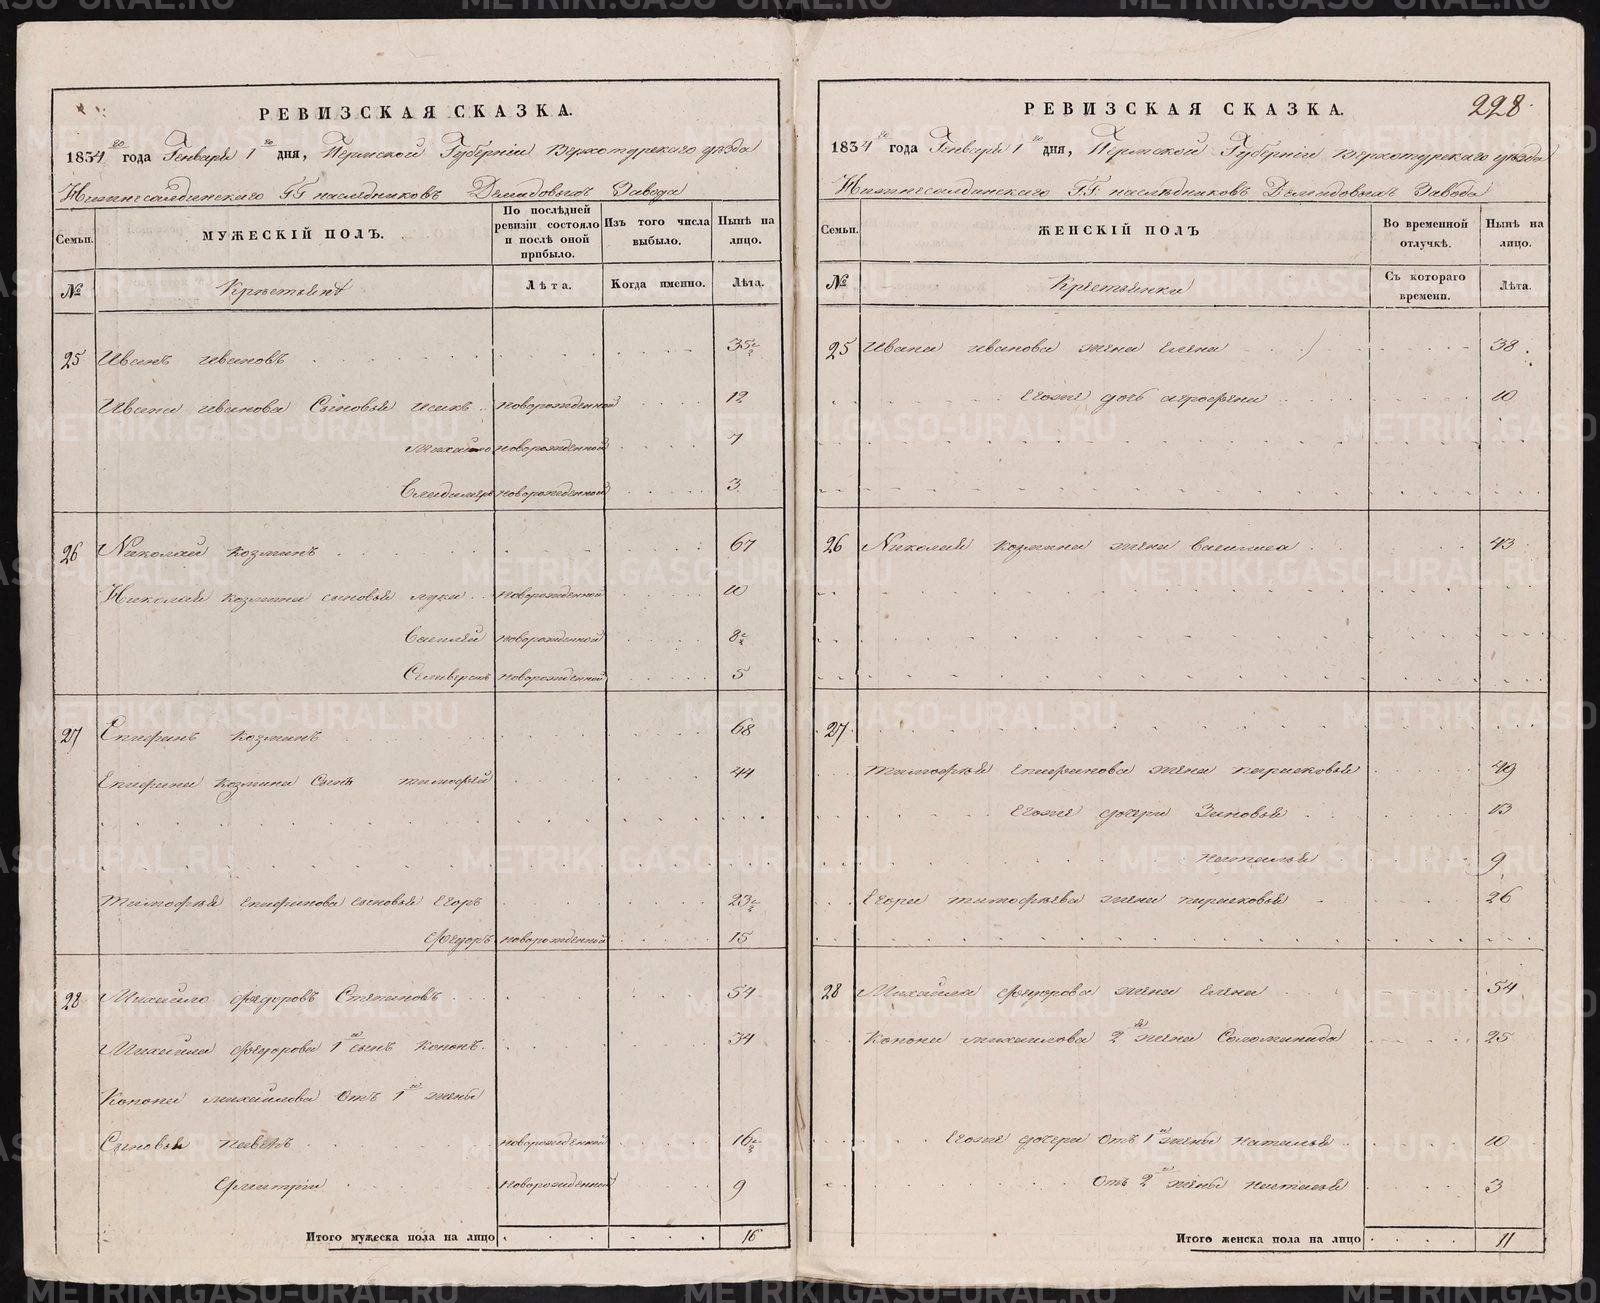 РЕВИЗСКАЯ СКАЗКА.
1834го года Генваря 1го дня, Пермской Губернiи Верхотурскаго уѣзда
Нижнесалдинскаго ГГ наслѣдниковъ Демидовыхъ Завода
Семьи.
МУЖЕСКIЙ ПОЛЪ.
По послѣдней ревизiи состояло и послѣ оной прибыло.
Изъ того числа выбыло.
Нынѣ на лицо.
№
Крестьянѣ
Лѣта.
Когда именно.
Лѣта.
25 Иванъ Ивановъ 35½
Ивана Иванова Сыновья Исакъ новорожденной 12
Михайло новорожденной 7
Владимеръ новорожденной 3
26 Николай Козминъ 67
Николая Козмина сыновья Лука новорожденной 10
Василей новорожденной 8½
Селиверстъ новорожденной 5
27 Епифанъ Козминъ 68
Епифана Козмина Сынъ Тимофей 44
Тимофѣя Епифанова сыновья Егоръ 23½
Федоръ новорожденной 15
28 Михайло Федоровъ Степановъ 54
Михайла Федорова 1й сынъ Кононъ 34
Конона Михайлова Отъ 1й жены
Сыновья Павелъ новорожденной 16½
Дмитрiй новорожденной 9
Итого мужеска пола на лицо 16
РЕВИЗСКАЯ СКАЗКА.
228.
1834го года Генваря 1го дня, Пермской Губернiи Верхотурскаго уѣзда
Нижнесалдинскаго ГГ. наслѣдниковъ Демидовыхъ Завода
Семьи.
ЖЕНСКIЙ ПОЛЪ
Во временной отлучкѣ.
Нынѣ на лицо.
№
Крестьянки
Съ котораго времени.
Лѣта.
25 Ивана Иванова жена Елена 38
Егоже дочь Агрофена 10
26 Николая Козмина жена Василиса 43
27
Тимофѣя Епифанова жена Парасковья 49
Егоже дочери Зиновья 13
Наталья 9
Егора Тимофѣева жена Парасковья 26
28 Михайла Федорова жена Елена 54
Конона Михайлова 2я жена Соломанида 25
Егоже дочери Отъ 1й жены Наталья 10
Отъ 2й жены Настасья 3
Итого женска пола на лицо 11
METRIKI.GASO-URAL.RU